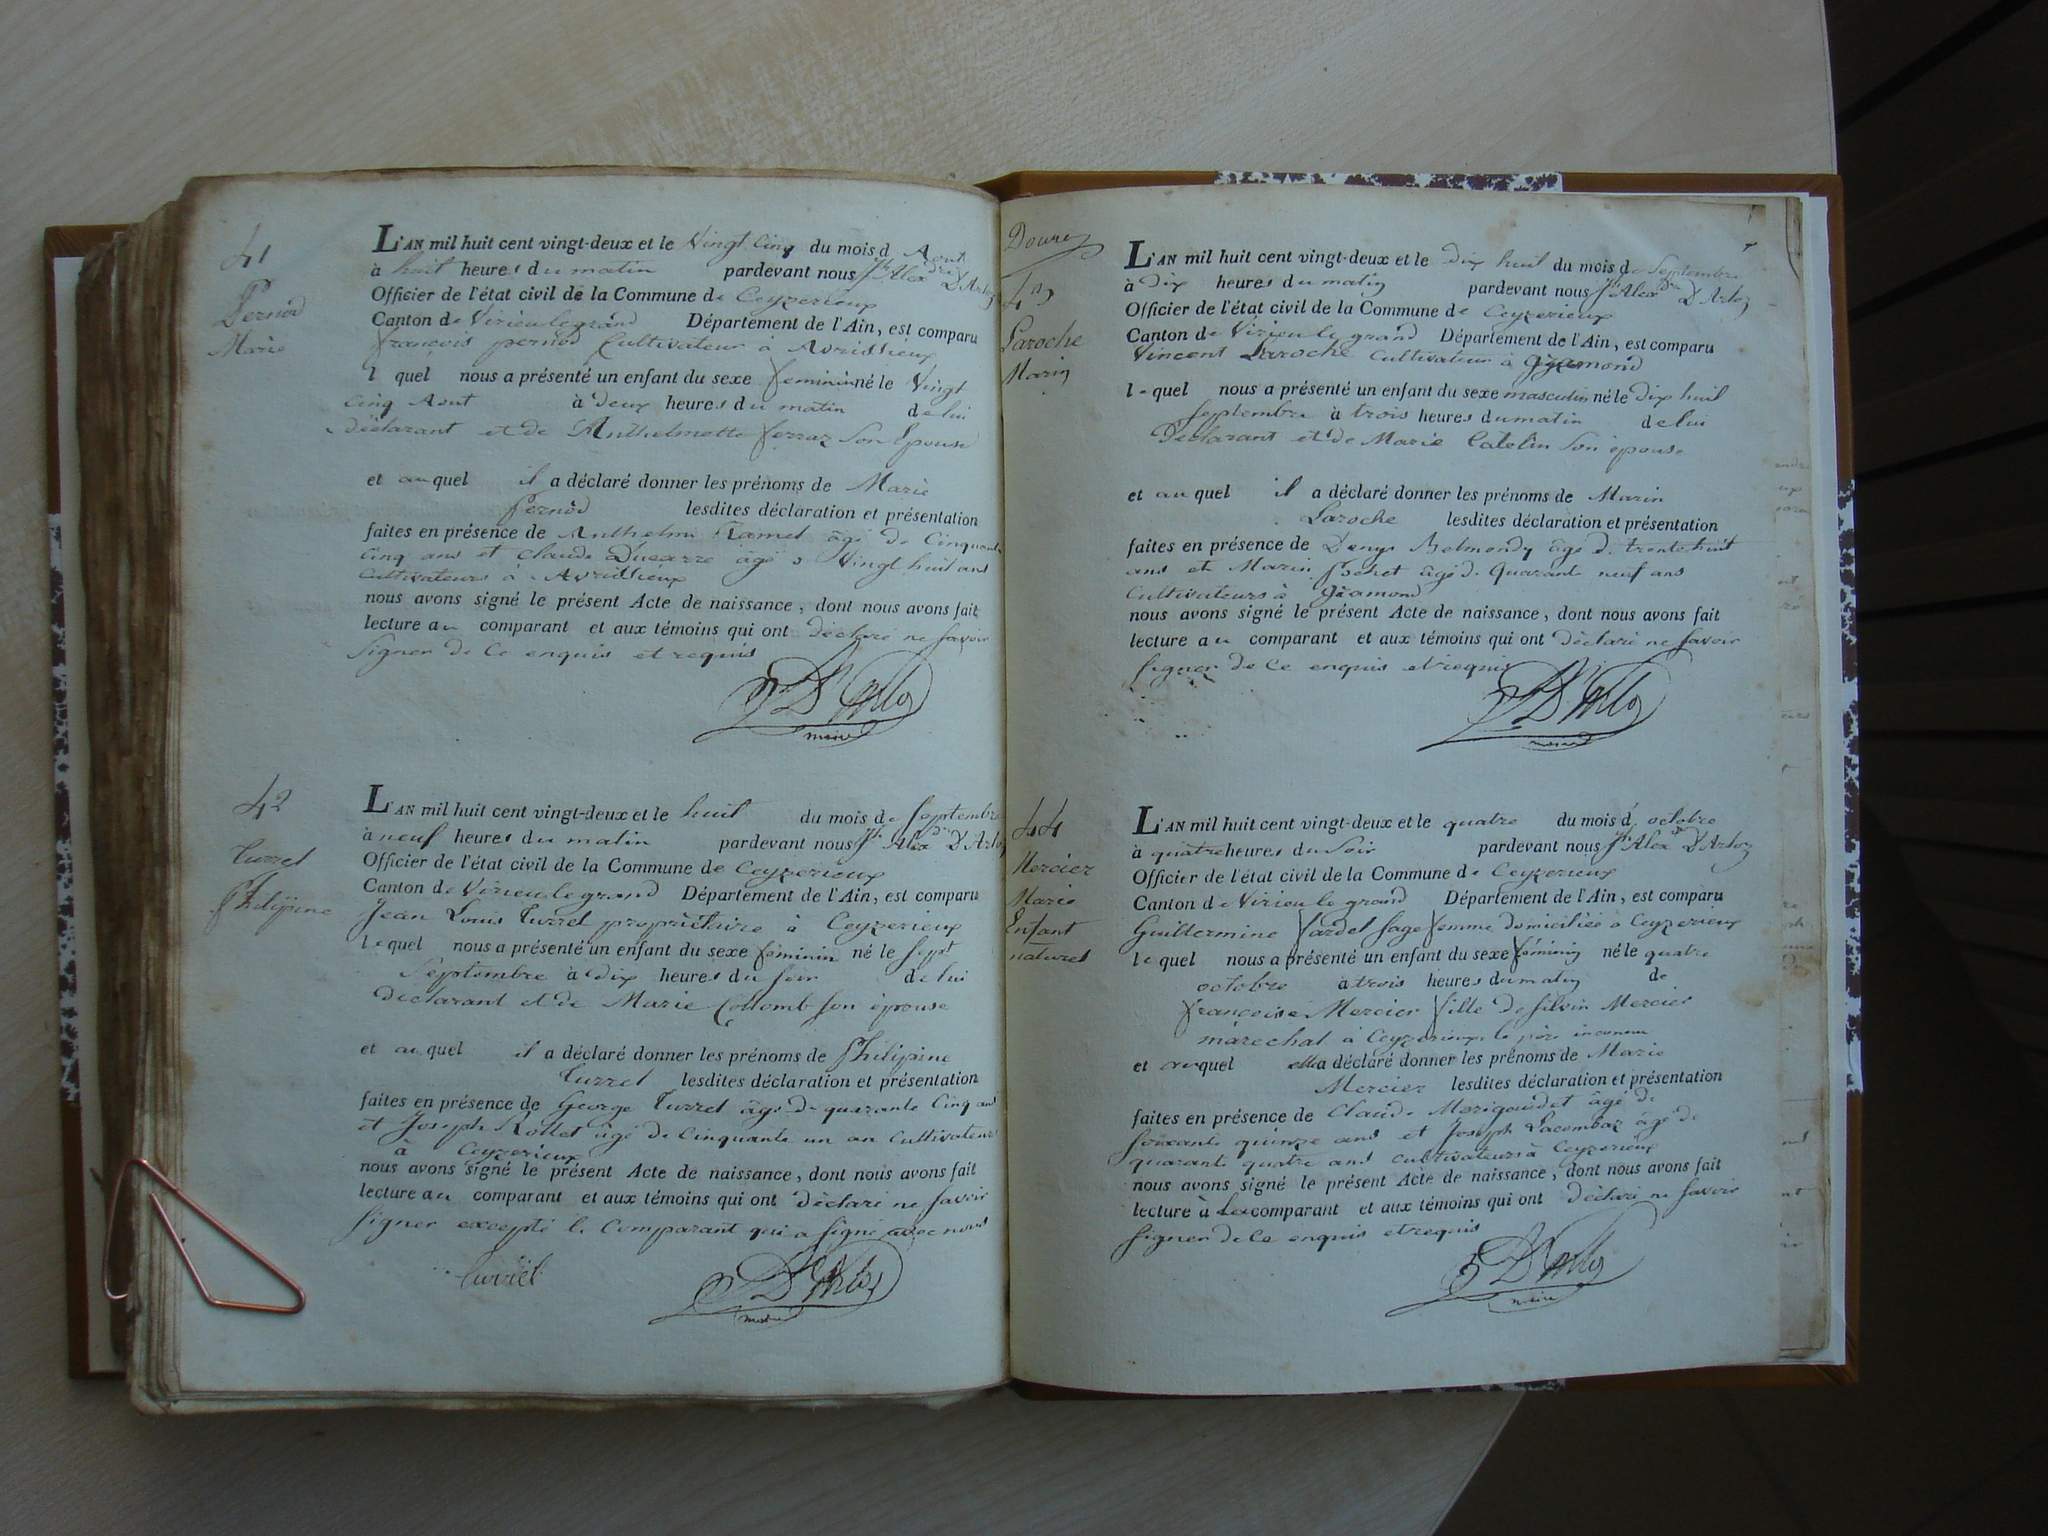 41
Pernod
Marie
L'AN mil huit cent vingt-deux et le Vingt Cinq du mois d Aout
à huit heures du matin pardevant nous Jh Alexdre D'Arloz
Officier de l'état civil de la Commune de Ceyzerieux
Canton de Virieu le grand Département de l'Ain, est comparu
françois pernod Cultivateur à Avrissieux
l quel nous a présenté un enfant du sexe feminin né le Vingt
cinq Aout à deux heures du matin de lui
déclarant et de Anthelmette ferraz Son Epouse
et au quel il a déclaré donner les prénoms de Marie
Pernod lesdites déclaration et présentation
faites en présence de Anthelme Hamel âgé de Cinquante
cinq ans et Claude Ducarre âgé de Vingt huit ans
Cultivateurs à Avrissieux
nous avons signé le présent Acte de naissance, dont nous avons fait
lecture au comparant et aux témoins qui ont déclaré ne savoir
Signer de Ce enquis et requis
J D'Arloz
maire
42
Turrel
Philipine
L'AN mil huit cent vingt-deux et le huit du mois de Septembre
à neuf heures du matin pardevant nous Jh Alexdre D'Arloz
Officier de l'état civil de la Commune de Ceyzerieux
Canton de Virieu le grand Département de l'Ain, est comparu
Jean Louis Turrel propriètaire à Ceyzerieux
le quel nous a présenté un enfant du sexe féminin né le Sept
Septembre à dix heures du Soir de lui
déclarant et de Marie Collomb son épouse
et au quel il a déclaré donner les prénoms de Philipine
Turrel lesdites déclaration et présentation
faites en présence de George Turrel âgé de quarante Cinq ans
et Joseph Rollet âgé de Cinquante un an Cultivateurs
à Ceyzerieux
nous avons signé le présent Acte de naissance, dont nous avons fait
lecture au comparant et aux témoins qui ont déclaré ne savoir
signer excepté le Comparant qui a signé avec nous
Turrel
J D'Arloz
maire
43
Laroche
Marin
L'AN mil huit cent vingt-deux et le dix huit du mois de Septembre
à dix heures du matin pardevant nous Jh Alexdre D'Arloz
Officier de l'état civil de la Commune de Ceyzerieux
Canton de Virieu le grand Département de l'Ain, est comparu
Vincent Laroche Cultivateur à
le quel nous a présenté un enfant du sexe masculin né le dix huit
Septembre à trois heures du matin de lui
Déclarant et de Marie Catelin Son épouse
et au quel il a déclaré donner les prénoms de Marin
Laroche lesdites déclaration et présentation
faites en présence de Denys Belmondy âgé de trente huit
ans et Marin Pochet âgé de Quarante neuf ans
Cultivateurs à
nous avons signé le présent Acte de naissance, dont nous avons fait
lecture au comparant et aux témoins qui ont déclaré ne savoir
signer de Ce enquis et requis
J D'Arloz
maire
44
Mercier
Marie
Enfant
naturel
L'AN mil huit cent vingt-deux et le quatre du mois d. octobre
à quatre heures du Soir pardevant nous Jh Alexdre D'Arloz
Officier de l'état civil de la Commune de Ceyzerieux
Canton de Virieu le grand Département de l'Ain, est comparu
Guillermine fardel sage femme domiciliée à Ceyzerieux
le quel nous a présenté un enfant du sexe féminin né le quatre
octobre à trois heures du matin de
françoise Mercier fille de Silvin Mercier
maréchal à Ceyzerieux le père inconnu
et au quel elle a déclaré donner les prénoms de Marie
Mercier lesdites déclaration et présentation
faites en présence de Claude Morigaudet âgé de
soixante quinze ans et Joseph Lacombaz âgé de
quarante quatre ans cultivateurs à Ceyzerieux
nous avons signé le présent Acte de naissance, dont nous avons fait
lecture à la comparant et aux témoins qui ont déclaré ne savoir
signer de Ce enquis et requis
J D'Arloz
maire